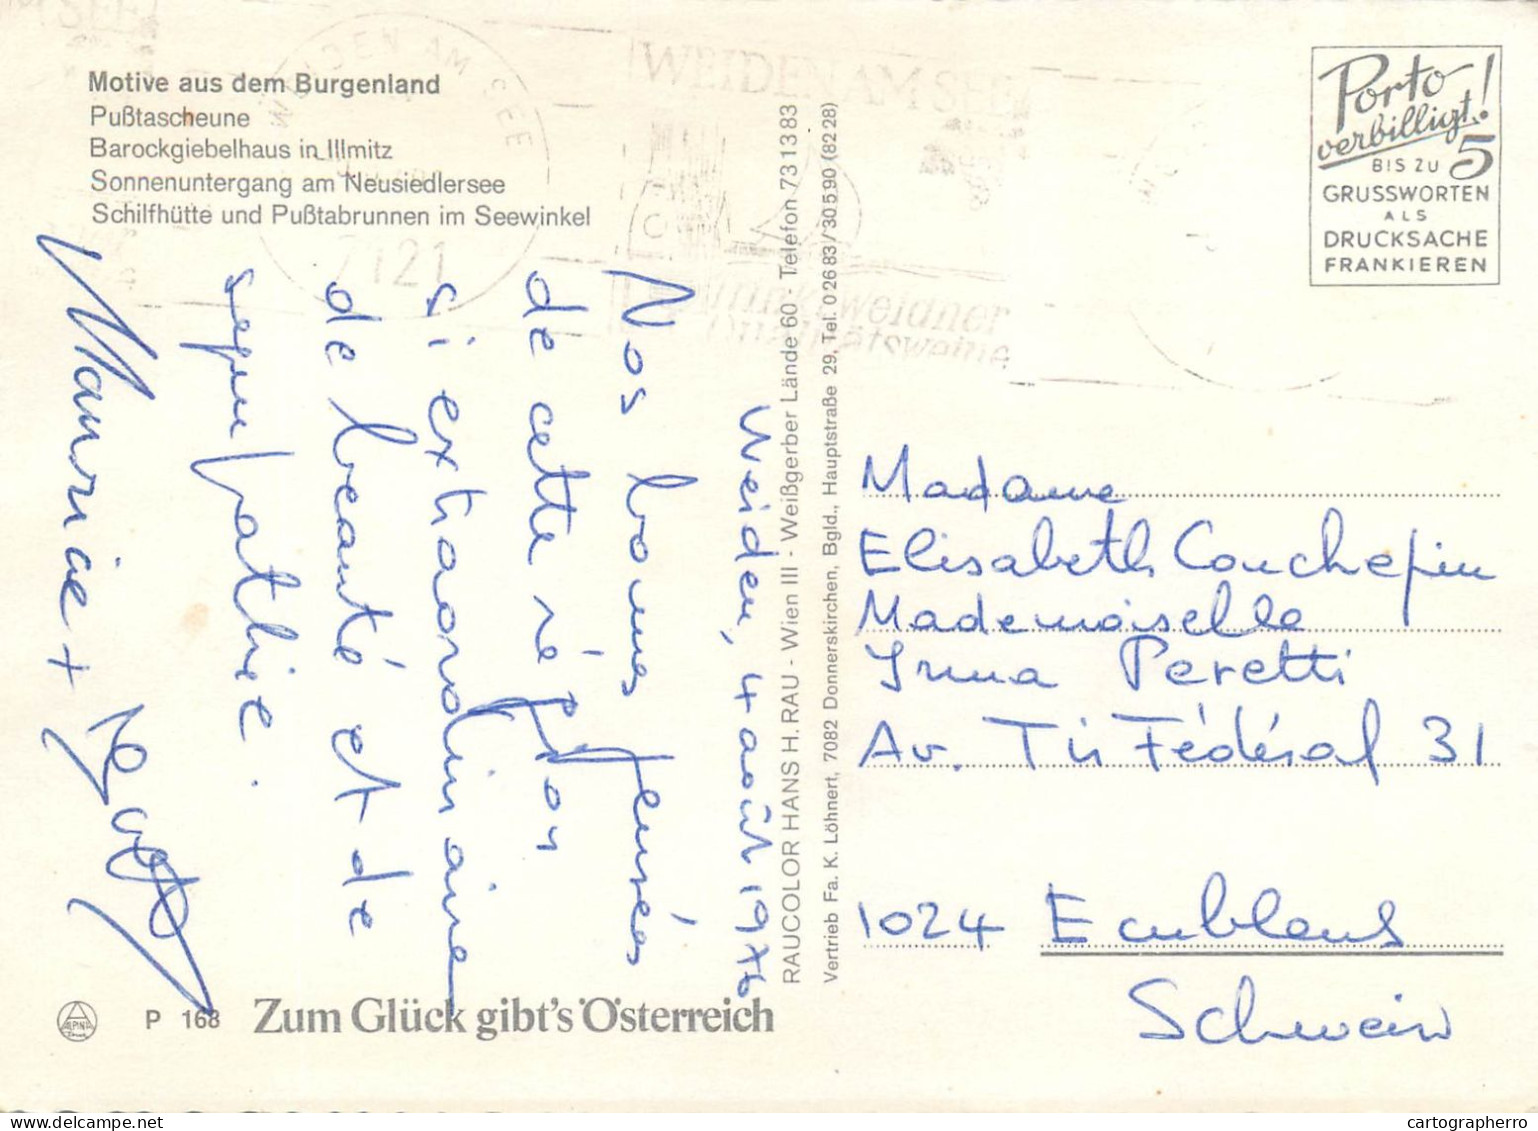 Motive aus dem Burgenland
Pußtascheune
Barockgiebelhaus in Illmitz
Sonnenuntergang am Neusiedlersee
Schilfhütte und Pußtabrunnen im Seewinkel
WEIDEN AM SEE
7121
WEIDEN AM SEE
Trinkt Weidner
Qualitätsweine
Porto
verbilligt!
BIS ZU 5
GRUSSWORTEN
ALS
DRUCKSACHE
FRANKIEREN
Weiden, 4 août 1976
Nos bonnes pensées
de cette région
si extraordinaire
de beauté et de
sympathie.
Maurice +
RAUCOLOR HANS H. RAU - Wien III - Weißgerber Lände 60 - Telefon 73 13 83
Vertrieb Fa. K. Löhnert, 7082 Donnerskirchen, Bgld., Hauptstraße 29, Tel. 0 26 83 / 30 5 90 (82 28)
Madame
Elisabeth Couchepin
Mademoiselle
Irma Peretti
Av. Tir Fédéral 31
1024 Ecublens
Schweiz
ALPINA
P 168 Zum Glück gibt's Österreich
cartographerro